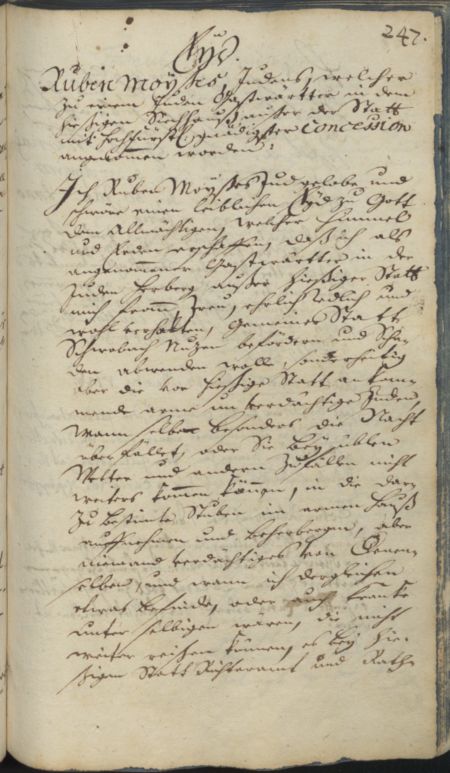 247.
Eyd.
Ruben Moyses Judens, welcher
zu einem Juden Gastwürtter in dem
hiesigen Siechhauß außer der Statt
mit hochfürstl. gnädigster Concession
angenommen worden:
Ich Ruben Moyses Jud gelobe und
schwöre einen leiblichen Eyd zu Gott
dem Allmächtigen, welcher Himmel
und Erden erschaffen, daß ich als
angenommener Gastwürtter in der
Juden Herberg außer hiesiger Statt
mich fromm, treu, ehrlich redlich und
wohl verhalten, Gemeiner Statt
Schwabach Nuzen befördern und Scha-
den abwenden wolle, sonderheitig
aber die vor hiesige Statt ankom-
mende arme unverdächtige Juden,
wann selbe besonders die Nacht
überfället, oder Sie bey üblen
Wetter und andern Zufällen nicht
weiters kommen können, in die dar-
zu bestimte Stuben im armen Hauß
auffnehmen und beherbergen, aber
niemand verdächtiges von denen-
selben, und wann ich dergleichen
etwas befinde, oder auch kranke
unter selbigen wären, die nicht
weiter reisen können, es bey hie-
sigen Statt Richteramt und Rath